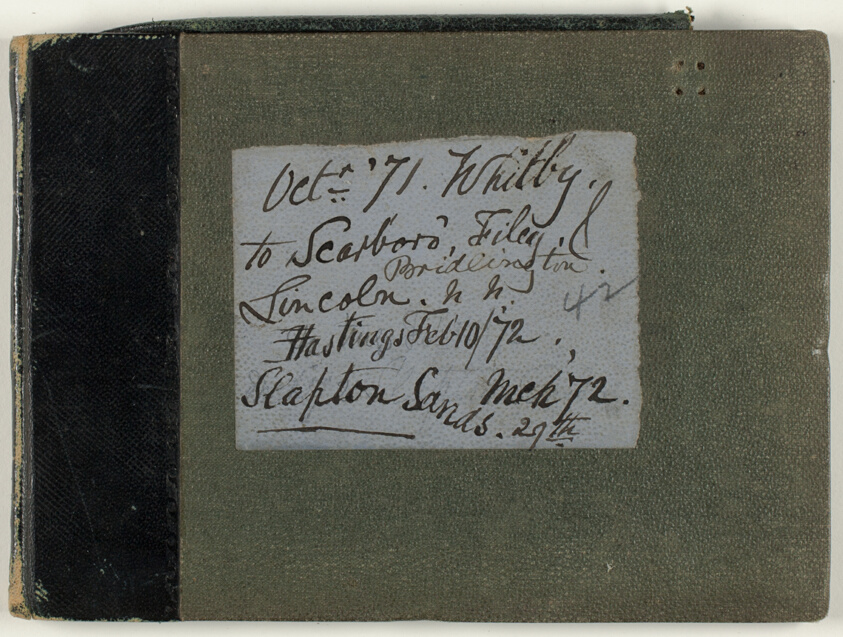 Octr '71. Whitby.
to Scarboro', Filey, &
Bridlington.
Lincoln. n n.
42
Hastings Feb 10/72.
Slapton Sands. Mch '72.
29th